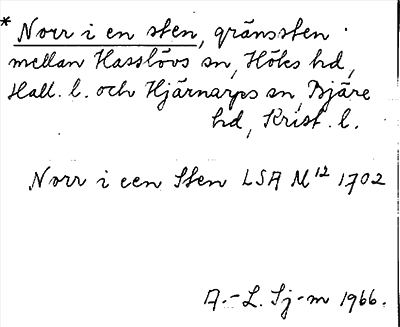 * Norr i en sten, gränssten
mellan Hasslövs sn, Höks hd,
Hall. l. och Hjärnarps sn, Bjäre
hd, Krist. l.
Norr i een Sten LSA M12 1702
A.-L. Sj-m 1966.